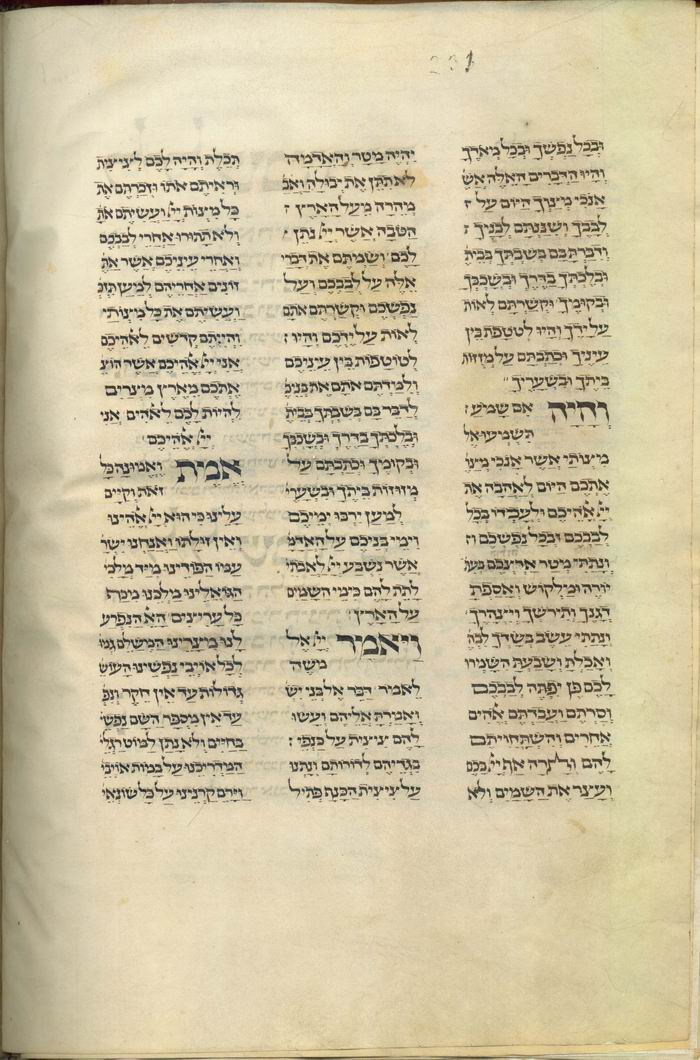 231
ובכל נפשך ובכל מאדך
והיו הדברים האלה אש
אנכי מצוך היום על
לבבך ושננתם לבניך
ודברתם בם בשבתך בבית
ובלכתך בדרך ובשכבך
ובקומיך וקשרתם לאות
על ידך והיו לטטפת בין
עיניך וכתבתם על מזוזות
ביתך ובשעריך
והיה אם שמוע
תשמעו אל
מצותי אשר אנכי מצו
אתכם היום לאהבה את
ייי אלהיכם ולעבדו בכל
לבבכם ובכל נפשכם
ונתתי מטר ארצכם בעת
יורה ומלקוש ואספת
דגנך ותירשך ויצהרך
ונתתי עשב בשדך לבה
ואכלת ושבעת השמרו
לכם פן יפתה לבבכם
וסרתם ועבדתם אלהים
אחרים והשתחויתם
להם וחרה אף ייי בכם
ועצר את השמים ולא
יהיה מטר והאדמה
לא תתן את יבולה ואב
מהרה מעל הארץ
הטבה אשר ייי נתן
לכם ושמתם את דברי
אלה על לבבכם ועל
נפשכם וקשרתם אתם
לאות על ידכם והיו
לטוטפות בין עיניכם
ולמדתם אתם את בניכ
לדבר בם בשבתך בבית
ובלכתך בדרך ובשכבך
ובקומיך וכתבתם על
מזוזות ביתך ובשערי
למען ירבו ימיכם
וימי בניכם על האדמ
אשר נשבע ייי לאבתי
לתת להם כימי השמים
על הארץ
ויאמר ייי אל
משה
לאמר דבר אל בני יש
ואמרת אליהם ועשו
להם ציצית על כנפי
בגדיהם לדורותם ונתנו
על ציצית הכנף פתיל
תכלת והיה לכם לציצית
וראיתם אותו וזכרתם את
כל מצות ייי ועשיתם את
ולא תתורו אחרי לבבכם
ואחרי עיניכם אשר את
זונים אחריהם למען תזכ
ועשיתם את כל מצותי
והייתם קדשים לאלהיכם
אני ייי אלהיכם אשר הוצ
אתכם מארץ מצרים
להיות לכם לאלהים אני
ייי אלהיכם
אמת ואמונה כל
זאת וקיים
עלינו כי הוא ייי אלהינו
ואין זולתו ואנחנו ישר
עמו הפורינו מיד מלכי
הגואלינו מלכנו מכף
כל עריצים האל הנפרע
לנו מצרינו המשלם גמו
לכל אויבי נפשינו העוש
גדולות עד אין חקר ונפ
עד אין מספר השם נפשי
בחיים ולא נתן למוט רגלי
המדריכנו על במות אויבי
וירם קרנינו על כל שונאי